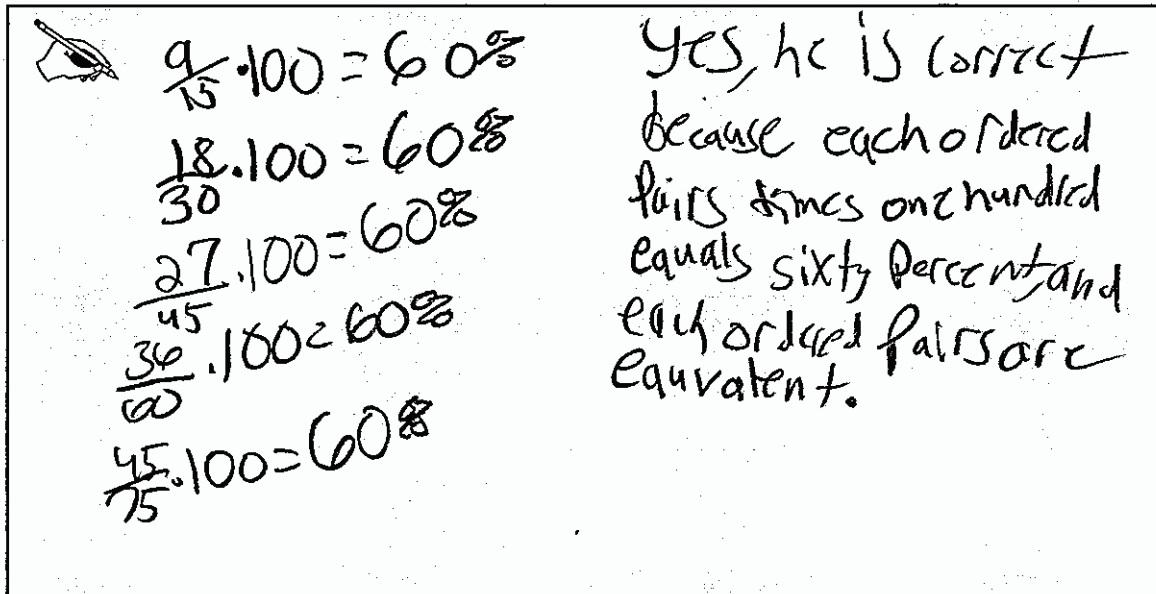 9/15 · 100 = 60%
18/30 · 100 = 60%
27/45 · 100 = 60%
36/60 · 100 = 60%
45/75 · 100 = 60%
Yes, he is correct
because each ordered
Pairs times one hundred
equals sixty Percent, and
each ordered Pairs are
equvalent.